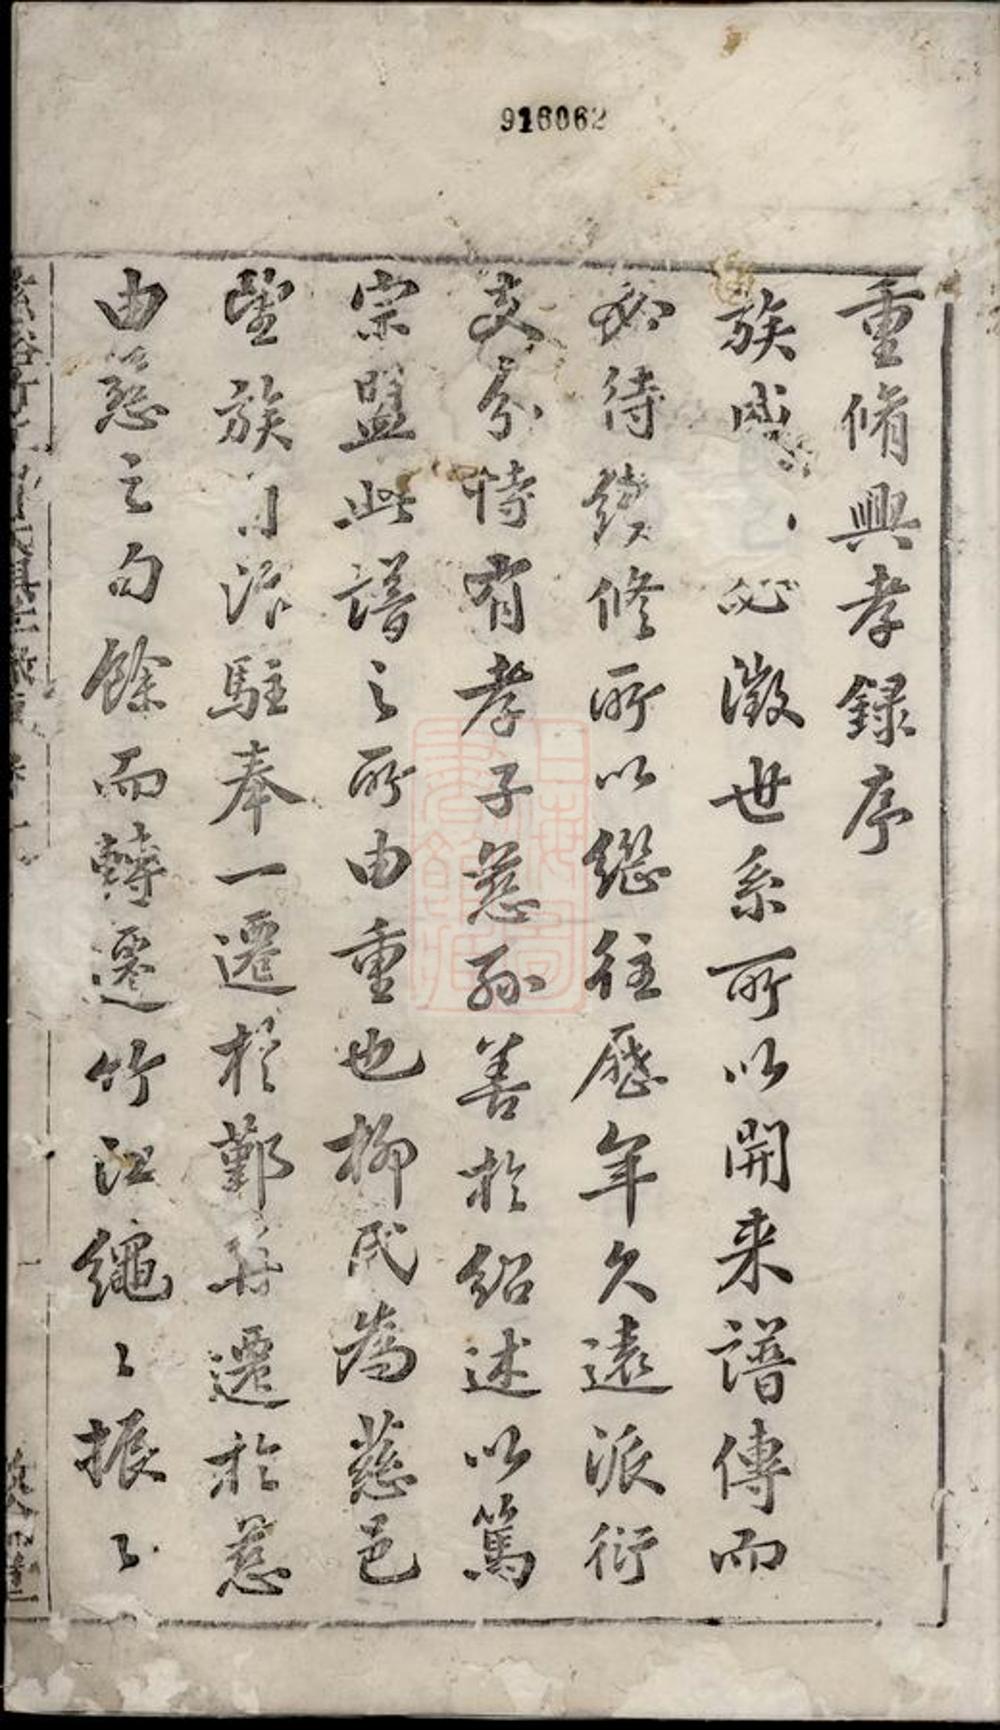 916062
重脩興孝録序
族成必徵世系所以開来譜傳而
必待續修所以繼往歷年久遠派衍
支分恃有孝子慈孫善於紹述以篤
宗盟此譜之所由重也柳氏為慈邑
望族自汾駐奉一遷於鄞再遷於慈
由慈之句餘而轉遷竹江繩〻振〻